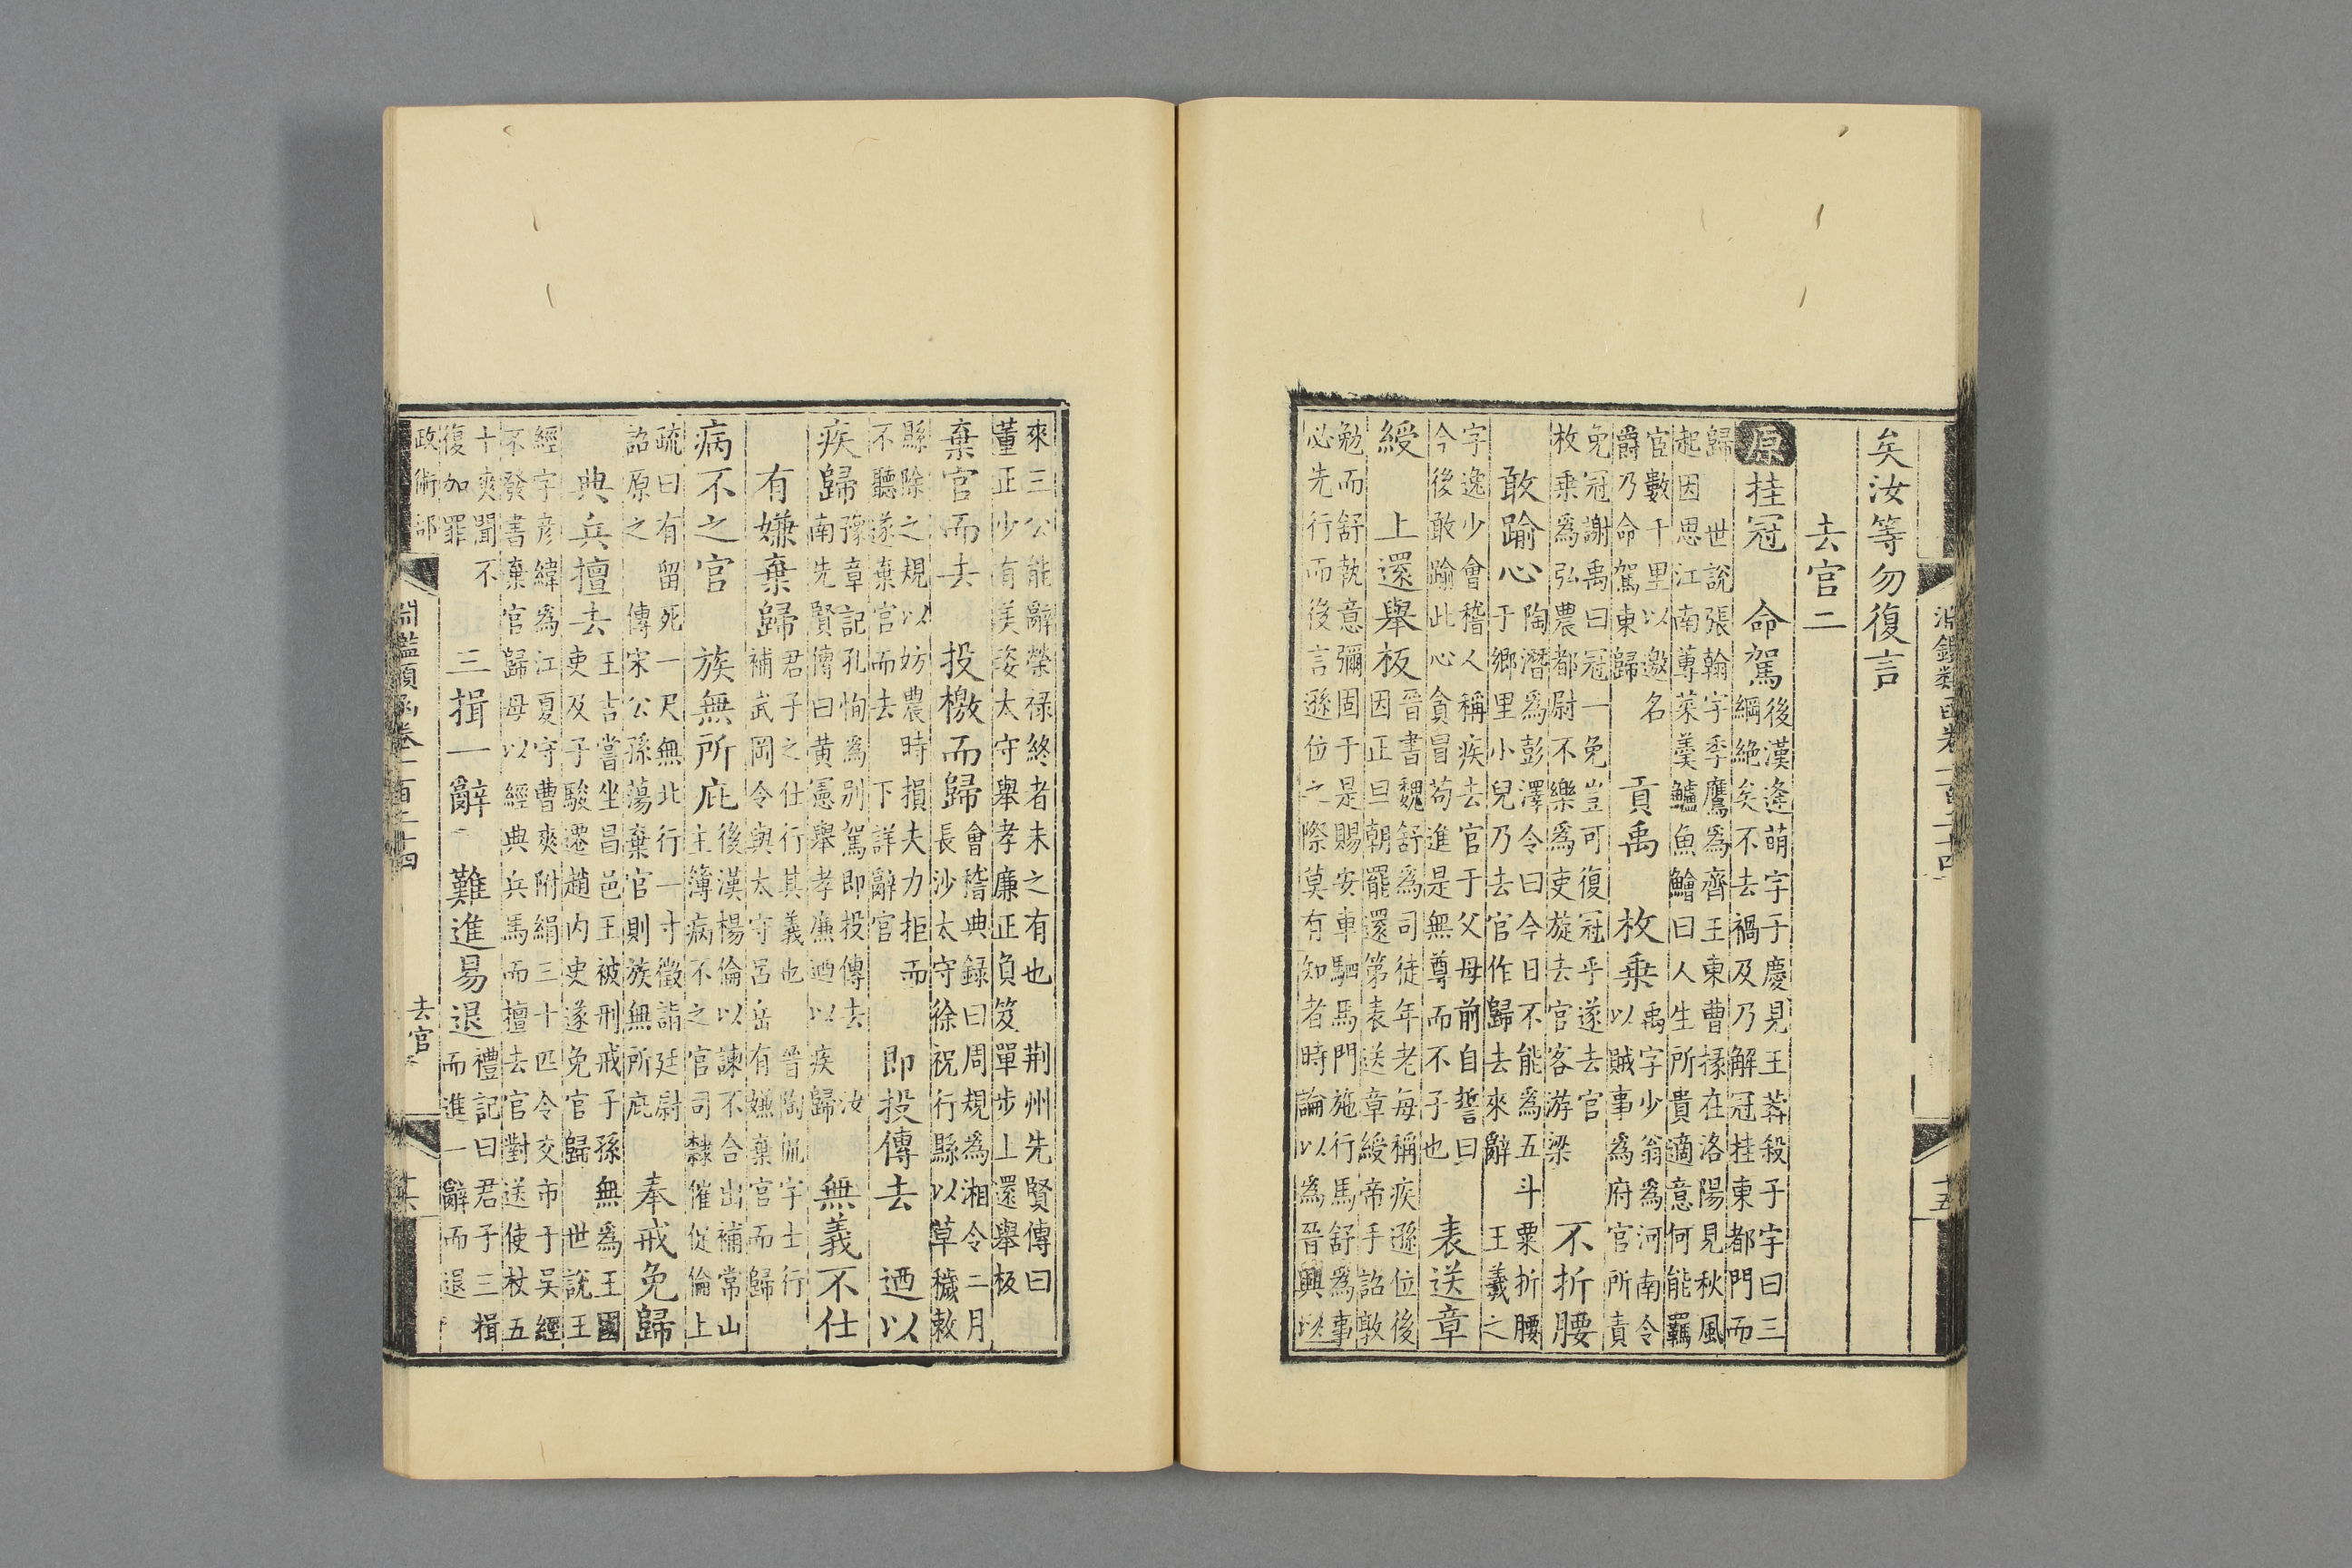 淵鑑類函卷一百二十四
十五
矣汝等勿復言
去官二
原挂冠 命駕
後漢逄萌字子慶見王莽殺子字曰三
綱絶矣不去禍及乃解冠挂東都門而
歸 世說張翰字季鷹為齊王東曹掾在洛陽見秋風
起因思江南蓴菜羹鱸魚鱠曰人生所貴適意何能羈
宦數千里以邀名
爵乃命駕東歸
貢禹 枚乗
禹字少翁為河南令
以賊事為府官所責
免冠謝禹曰冠一免豈可復冠乎遂去官
枚乗為弘農都尉不樂為吏旋去官客游梁
不折腰
敢踰心
陶潛為彭澤令曰今日不能為五斗粟折腰
于鄉里小兒乃去官作歸去來辭 王羲之
字逸少會稽人稱疾去官于父母前自誓曰
今後敢踰此心貪冒苟進是無尊而不子也
表送章
綬 上還舉板
晉書魏舒為司徒年老每稱疾遜位後
因正旦朝罷還第表送章綬帝手詔敦
勉而舒執意彌固于是賜安車駟馬門施行馬舒為事
必先行而後言遜位之際莫有知者時論以為晉興以
來三公能辭榮禄終者未之有也 荆州先賢傳曰
董正少有美姿太守舉孝廉正負笈單步上還舉板
棄官而去 投檄而歸
會稽典録曰周規為湘令二月
長沙太守徐祝行縣以草穢敕
縣除之規以妨農時損夫力拒而
不聽遂棄官而去 下詳辭官
即投傳去 迺以
疾歸
豫章記孔恂為别駕即投傳去 汝
南先賢傳曰黄憲舉孝廉迺以疾歸
無義不仕
有嫌棄歸
君子之仕行其義也 晉陶侃字士行
補武岡令與太守吕岳有嫌棄官而歸
病不之官 族無所庇
後漢楊倫以諫不合出補常山
主簿病不之官司隸催促倫上
疏曰有留死一尺無北行一寸徵詣廷尉
詔原之 傳宋公孫蕩棄官則族無所庇
奉戒免歸
典兵擅去
王吉嘗坐昌邑王被刑戒子孫無為王國
吏及子駿遷趙内史遂免官歸 世說王
經字彦緯為江夏守曹爽附絹三十匹令交市于吳經
不發書棄官歸母以經典兵馬而擅去官對送使杖五
十爽聞不
復加罪
三揖一辭 難進易退
禮記曰君子三揖
而進一辭而退
政術部 淵鑑類函卷一百二十四 去官 十六